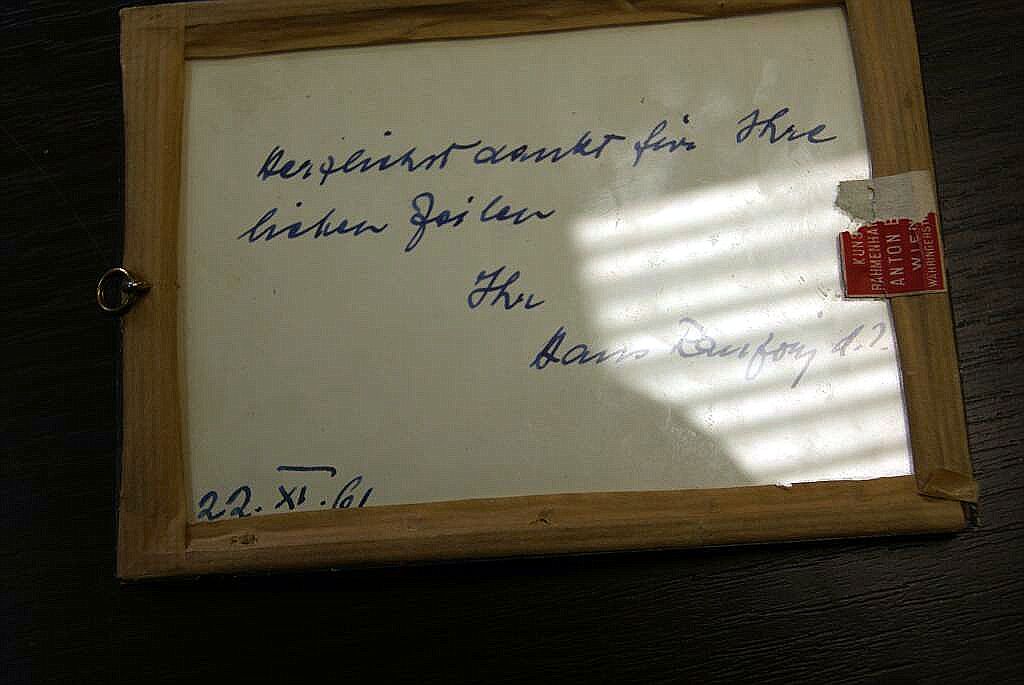 Herzlichst dankt für Ihre
lieben Zeilen
Ihr
Hans
22. XI. 61
KUNS
RAHMENHA
ANTON
WIEN
WÄHRINGERST